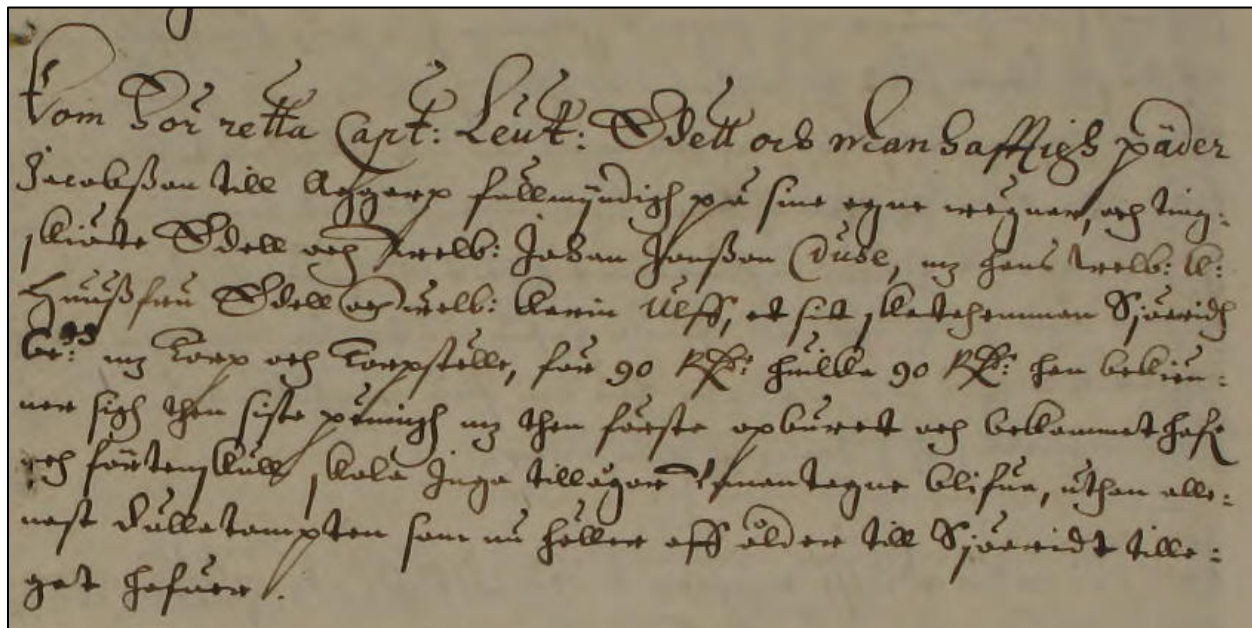 Kom för retta Capt: Leut: Edell och manhafftigh päder
Jacobßon till Aggarp fullmyndigh på sine egne wägner, och ting:
skiötte Edell och welb: Johan Jonßon Duse, mz hans welb: k:
Huußfru Edell och welb: Karin Ulff, et sitt skattehemman Sjöaridh
be:dd mz Torp och Torpställe, för 90 Rdr: huilka 90 Rdr: han bekiän:
ner sigh then siste päningh mz then förste opburet och bekommet hafr
och förtenskull skole Inga tillägor undantagne blifua, uthan alle:
nast Kullatompten som nu håller aff ålder till Sjöaridt tille:
gat hafuer.